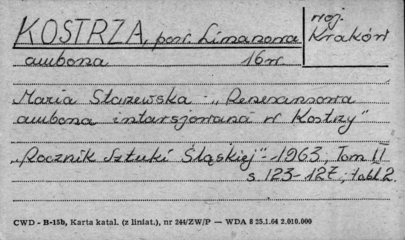 KOSTRZA, pow. Limanowa
woj. Kraków
ambona 16 w.
Maria Starzewska: "Renesansowa
ambona intarsjowana w Kostrzy"
"Rocznik Sztuki Śląskiej" - 1963, Tom II
s. 123-127, tabl. 2.
CWD - B-15b, Karta katal. (z liniat.), nr 244/ZW/P — WDA 8 25.1.64 2.010.000